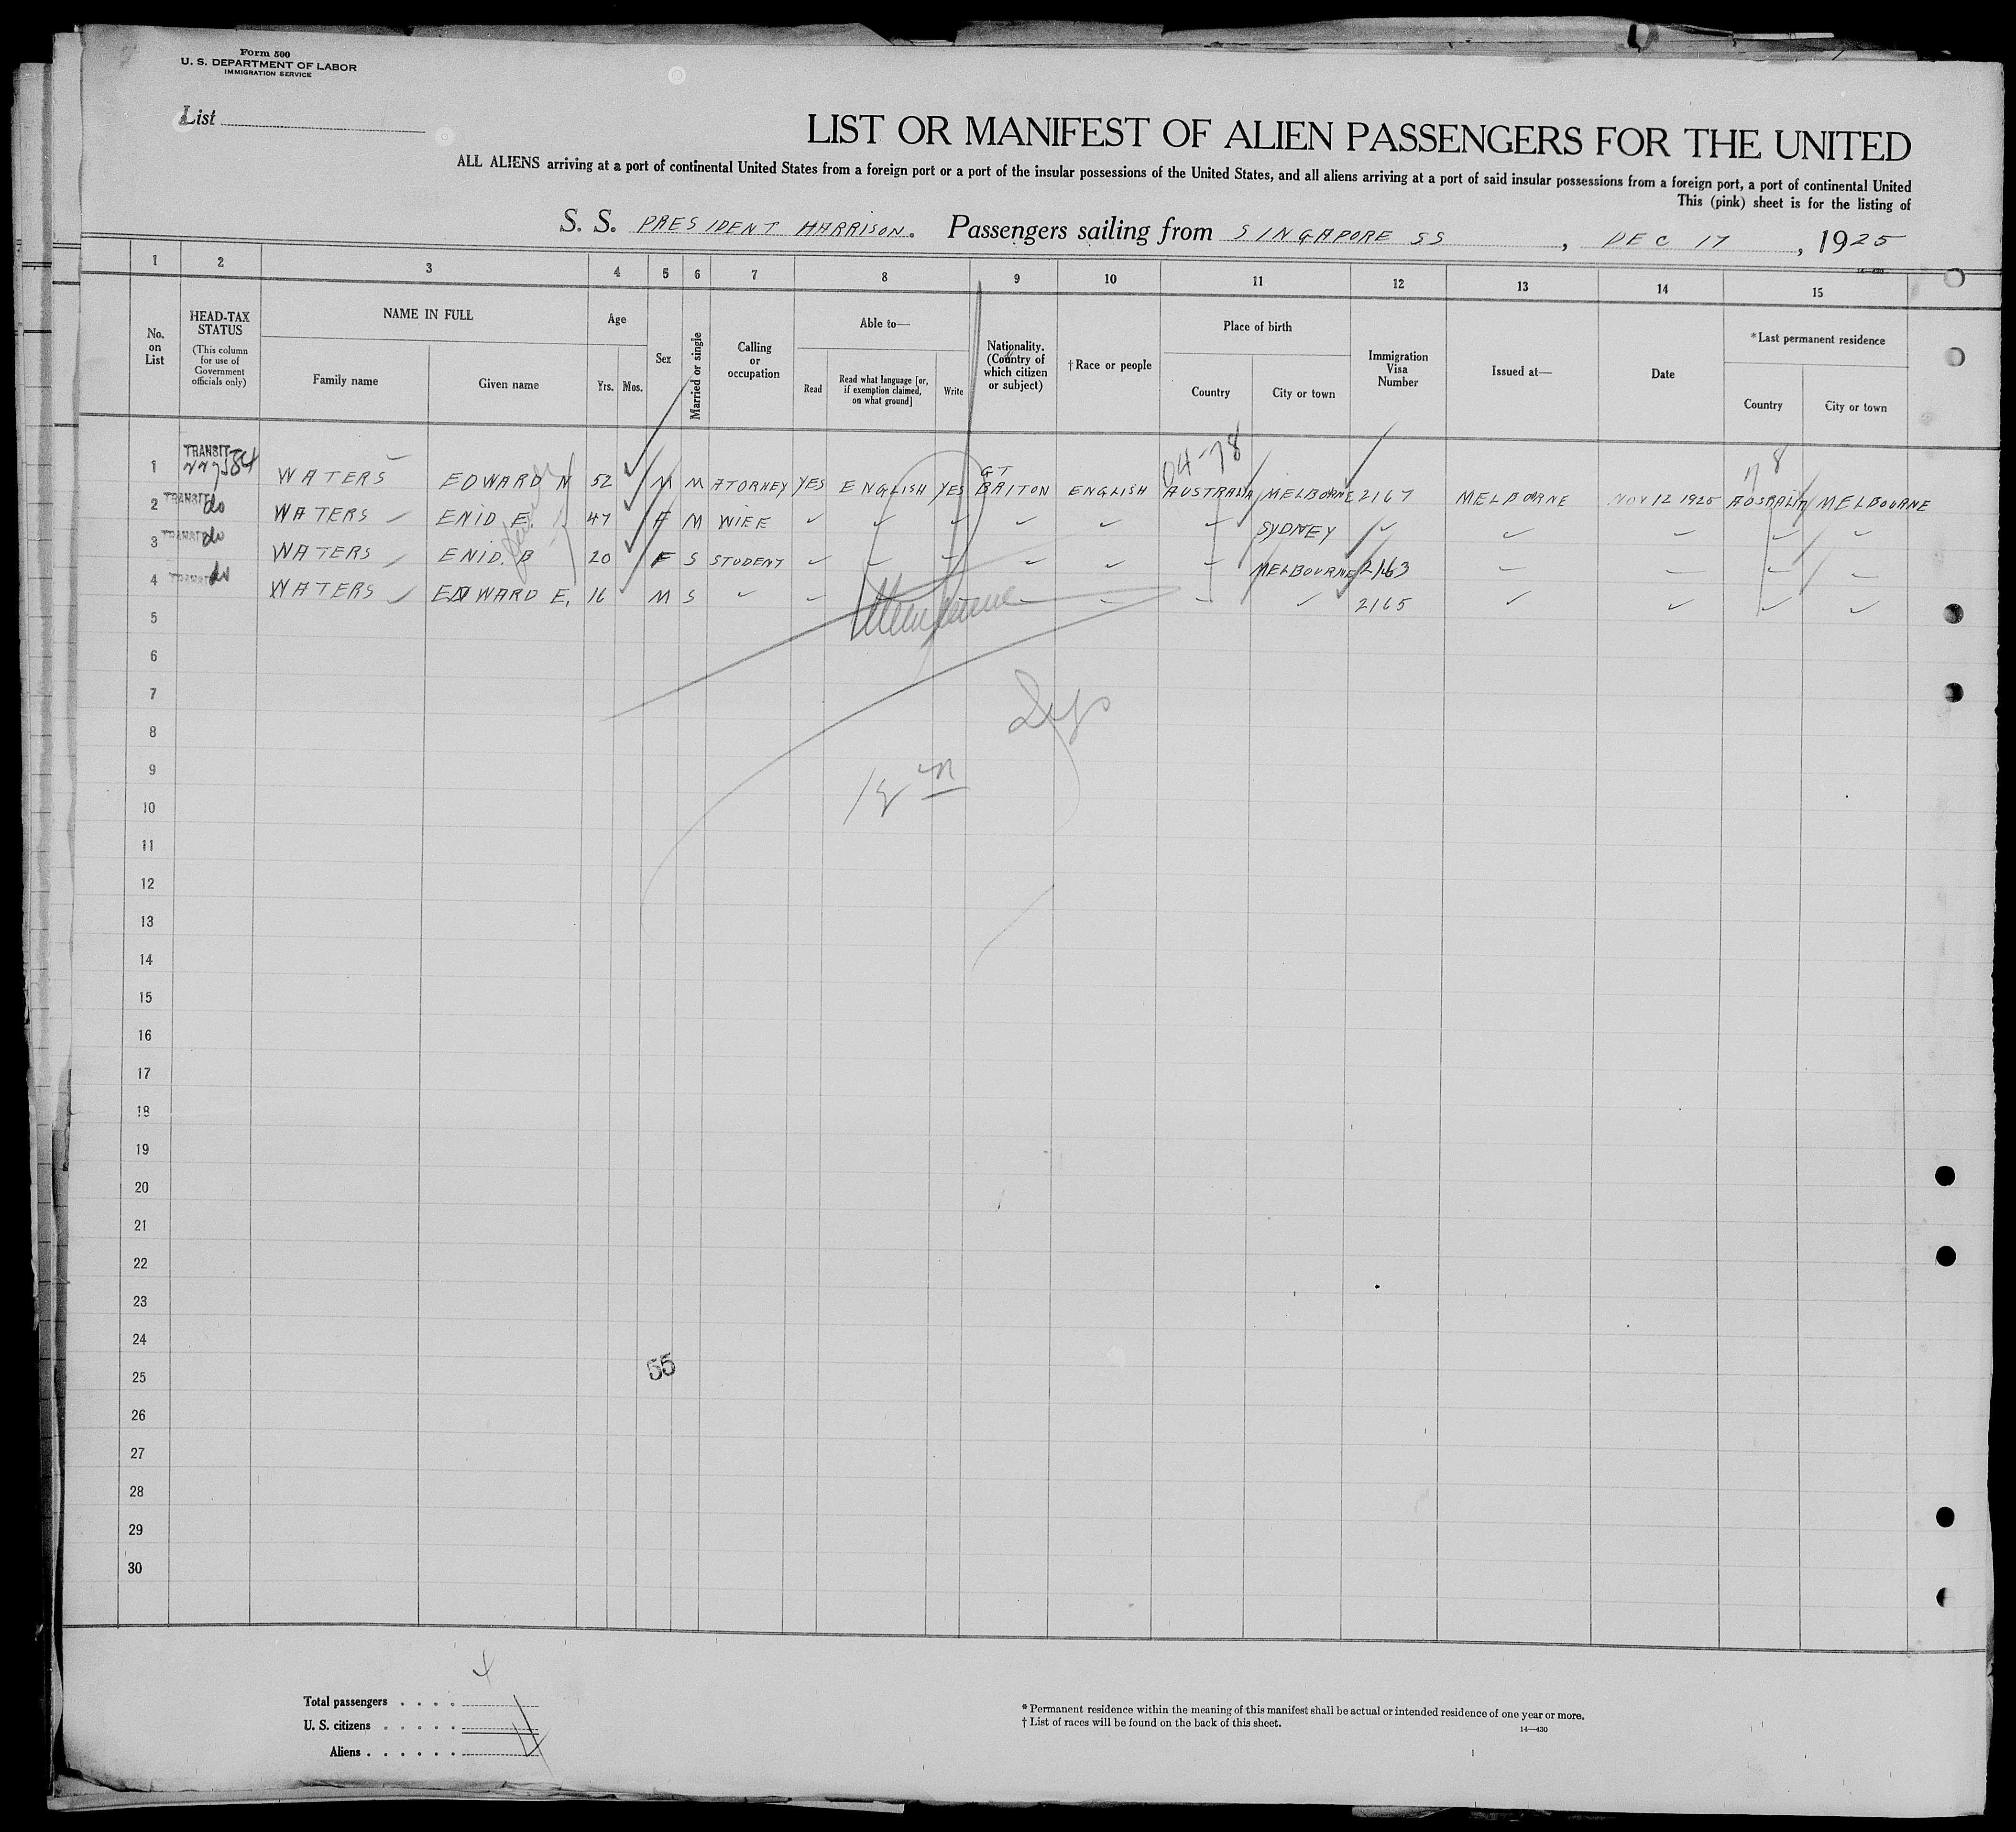 Form 500
U. S. DEPARTMENT OF LABOR
IMMIGRATION SERVICE
List
LIST OR MANIFEST OF ALIEN PASSENGERS FOR THE UNITED
ALL ALIENS arriving at a port of continental United States from a foreign port or a port of the insular possessions of the United States, and all aliens arriving at a port of said insular possessions from a foreign port, a port of continental United
This (pink) sheet is for the listing of
S. S. PRESIDENT HARRISON. Passengers sailing from SINGAPORE SS, DEC 17, 1925
14—430
1 2 3 4 5 6 7 8 9 10 11 12 13 14 15
No. on List
HEAD-TAX STATUS
(This column for use of Government officials only)
NAME IN FULL
Family name
Given name
Age
Yrs. Mos.
Sex
Married or single
Calling or occupation
Able to—
Read
Read what language [or, if exemption claimed, on what ground]
Write
Nationality. (Country of which citizen or subject)
†Race or people
Place of birth
Country
City or town
Immigration Visa Number
Issued at—
Date
*Last permanent residence
Country
City or town
04-78 78
1 TRANSIT WATERS EDWARD N 52 M M ATORNEY YES ENGLISH YES GT BRITON ENGLISH AUSTRALIA MELBORNE 2167 MELBORNE NOV 12 1925 AUSTRALIA MELBOURNE
2 TRANSIT do WATERS ENID E. 47 F M WIFE ✓ ✓ ✓ ✓ ✓ ✓ SYDNEY ✓ ✓ ✓ ✓ ✓
3 TRANSIT do WATERS ENID. B 20 F S STUDENT ✓ ✓ ✓ ✓ ✓ ✓ MELBOURNE 2163 ✓ ✓ ✓ ✓
4 TRANSIT do WATERS EDWARD E. 16 M S ✓ ✓ ✓ ✓ ✓ ✓ ✓ ✓ 2165 ✓ ✓ ✓ ✓
5
6
7
8
9
10
11
12
13
14
15
16
17
18
19
20
21
22
23
24
55
25
26
27
28
29
30
4
Total passengers . . . .
U. S. citizens . . . . .
Aliens . . . . . .
* Permanent residence within the meaning of this manifest shall be actual or intended residence of one year or more.
† List of races will be found on the back of this sheet.
14—430